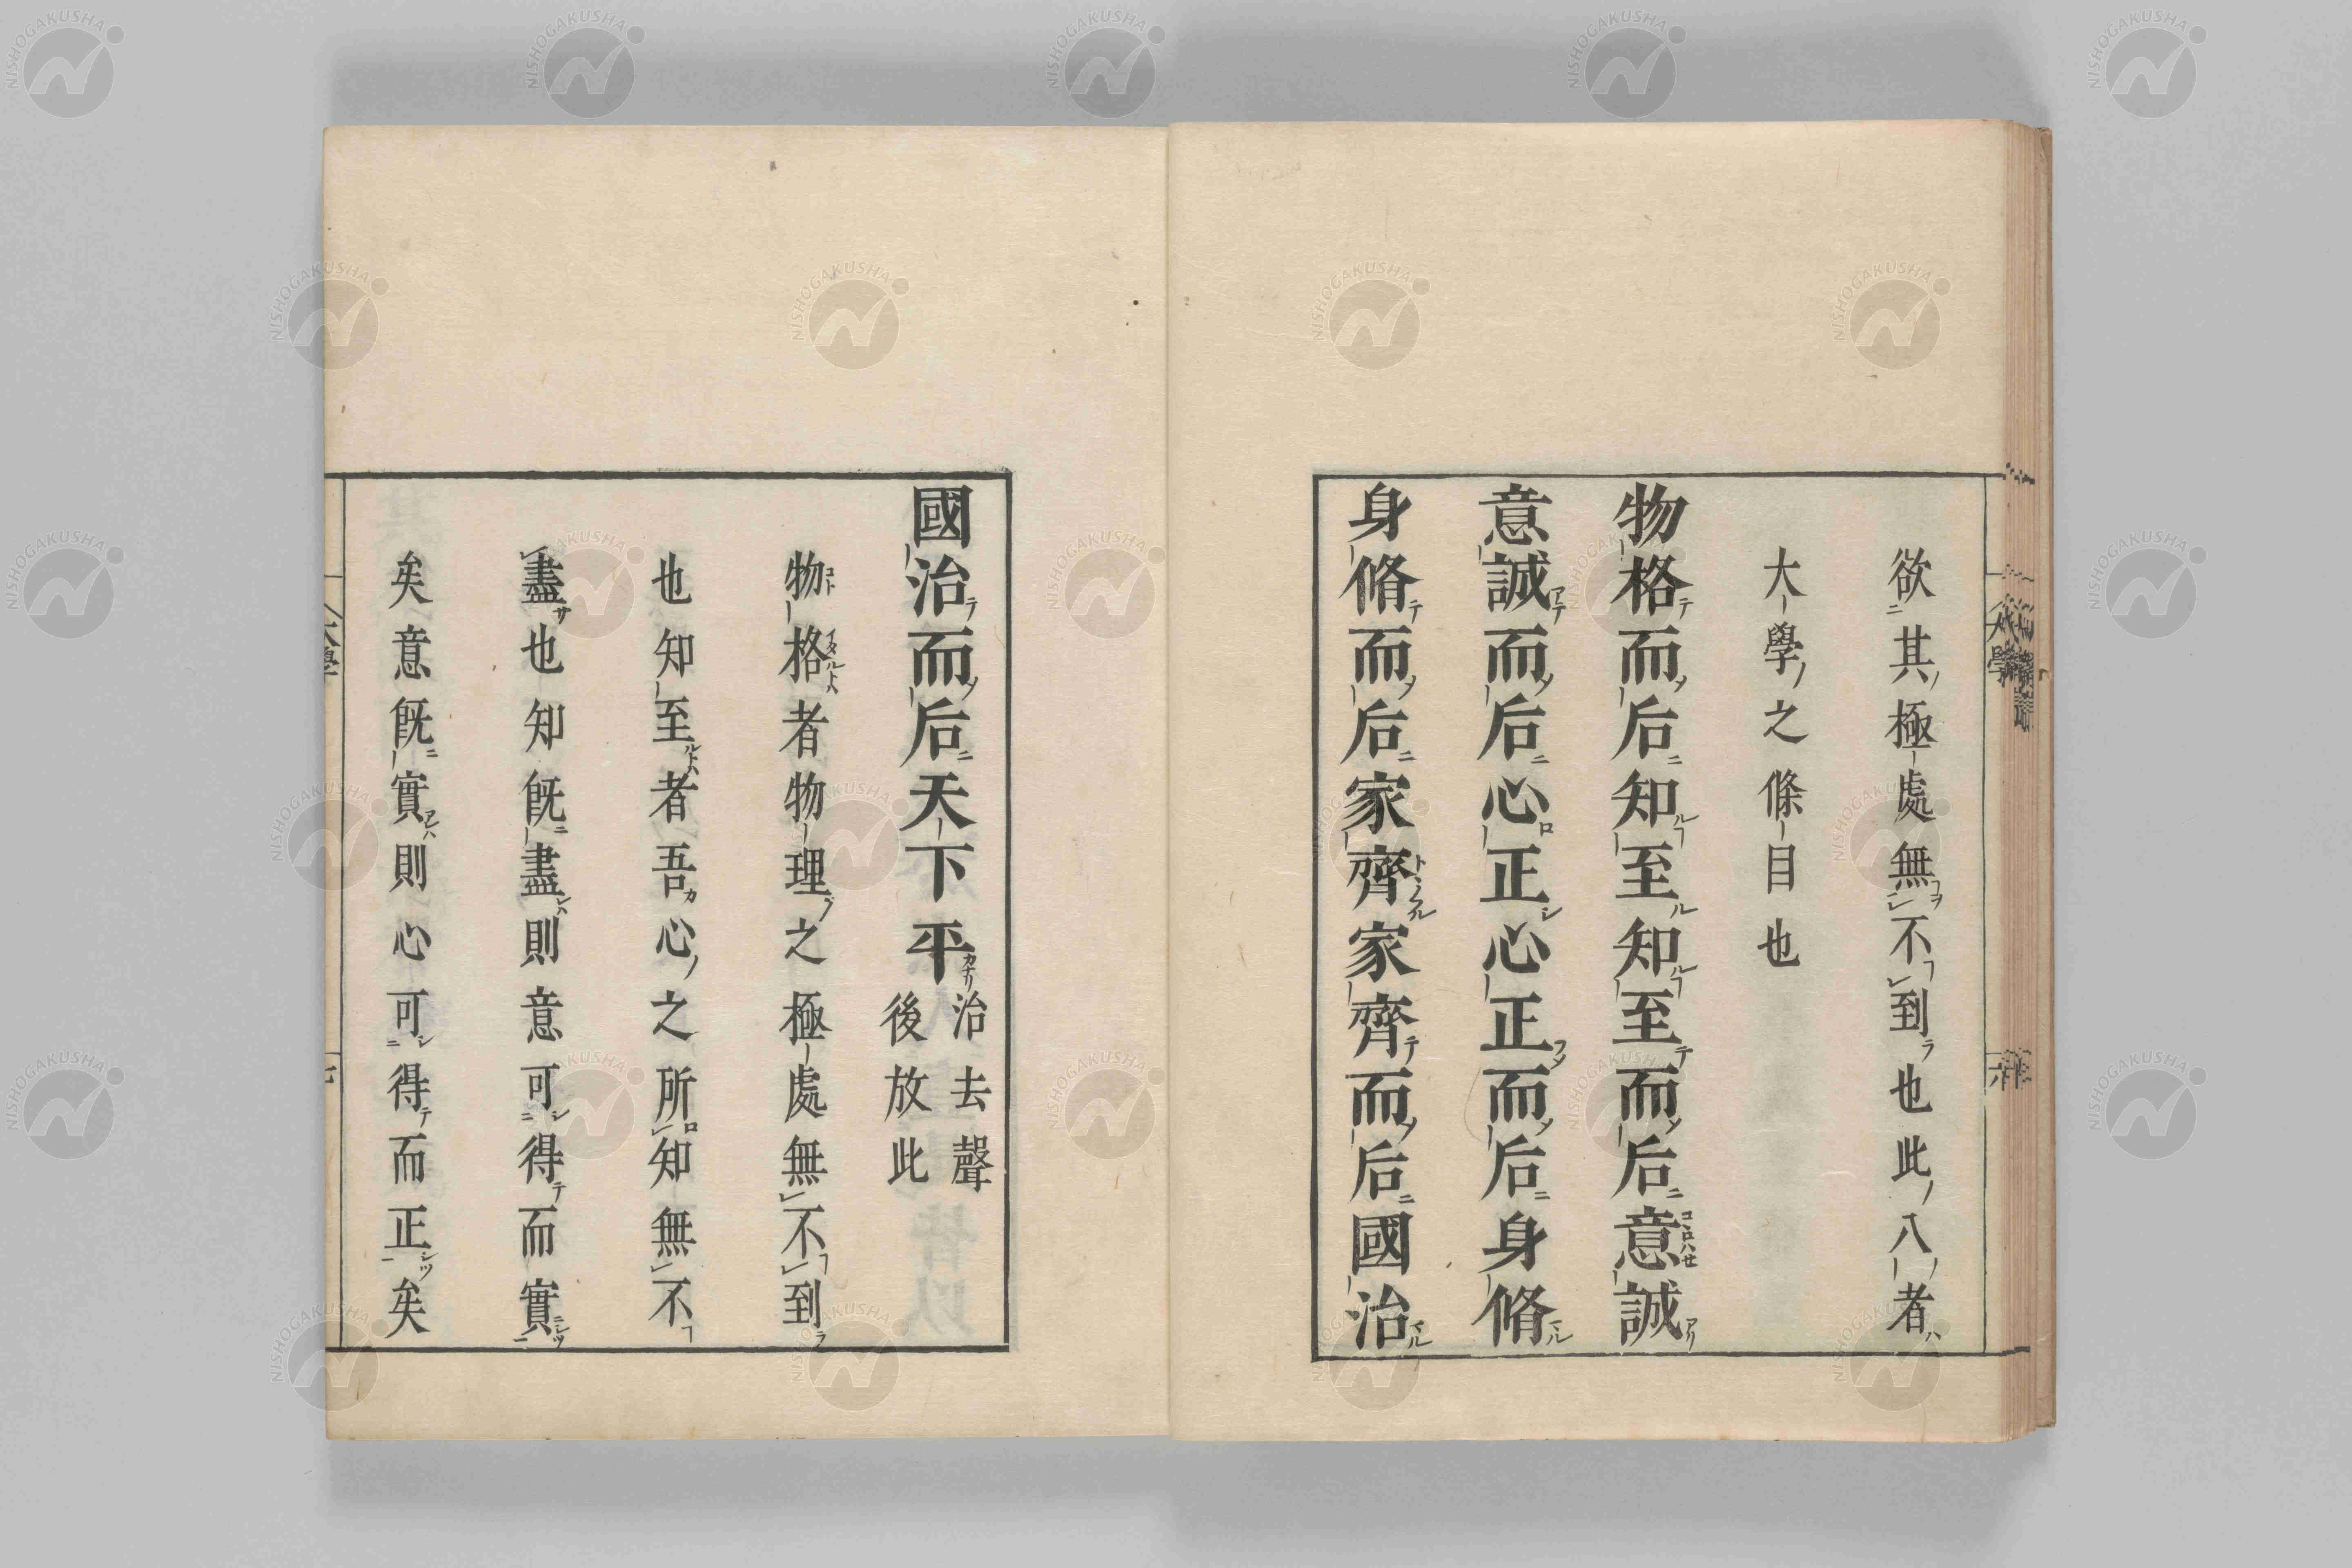 欲其極處無不到也此八者
大學之條目也
物格而后知至知至而后意誠
意誠而后心正心正而后身脩
身脩而后家齊家齊而后國治
國治而后天下平
治去聲
後放此
物格者物理之極處無不到
也知至者吾心之所知無不
盡也知旣盡則意可得而實
矣意旣實則心可得而正矣
大學
六
NISHOGAKUSHA